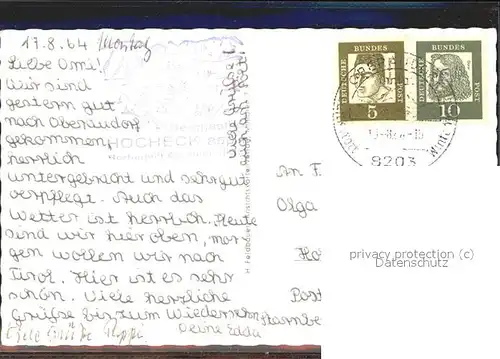 17.8.64 Montag
Liebe Omi!
Wir sind
gestern gut
nach Oberaudorf
gekommen,
herrlich
untergebracht und sehr gut
verpflegt. Auch das
Wetter ist herrlich. Heute
sind wir hier oben, mor-
gen wollen wir nach
Tirol. Hier ist es sehr
schön. Viele herzliche
Grüße bis zum Wiedersehn
Deine Edda
Viele Grüße
Viele Grüße
HOCHECK
DEUTSCHE BUNDES POST
5
DEUTSCHE BUNDES POST
10
8203
An F
Olga
Ho
Post
Starnbe
privacy protection (c)
Datenschutz